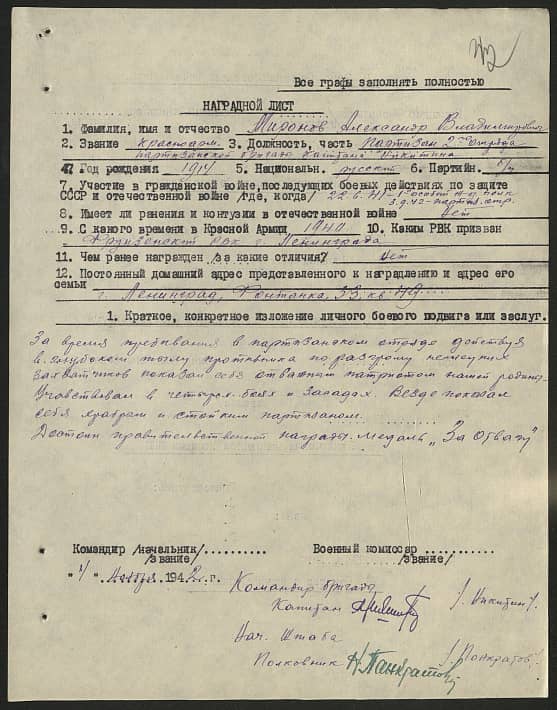 Все графы заполнять полностью
НАГРАДНОЙ ЛИСТ
1. Фамилия, имя и отчество Миронов Александр Владимирович
2. Звание красноарм. 3. Должность, часть партизан 2го отряда
партизанской бригады Капитана Никитина
4. Год рождения 1914 5. Национальн. русский 6. Партийн. б/п
7. Участие в гражданской войне,последующих боевых действиях по защите
СССР и отечественной войне /где, когда/ 22.6.41
3.9.42-партиз.отр.
8. Имеет ли ранения и контузии в отечественной войне нет
9. С какого времени в Красной Армии 1940 10. Каким РВК призван
Фрунзенский РВК г. Ленинграда
11. Чем ранее награжден /за какие отличия/ нет
12. Постоянный домашний адрес представленного к наградлению и адрес его
семьи
г. Ленинград, Фонтанка, 33, кв.
1. Краткое, конкретное изложение личного боевого подвига или заслуг.
За время пребывания в партизанском отряде действуя
в глубоком тылу противника по разгрому немецких
захватчиков показал себя отважным патриотом нашей родины.
Участвовал в четырех боях и засадах. Везде показал
себя храбрым и стойким партизаном.
Достоин правительственной награды медаль „За Отвагу"
Командир /начальник/.......... Военный комиссар ............
/звание/ /звание/
" " ноября 1942 г.
Командир бригады
Капитан /Никитин/
Нач. Штаба
Полковник Н.Панкратов /Панкратов/